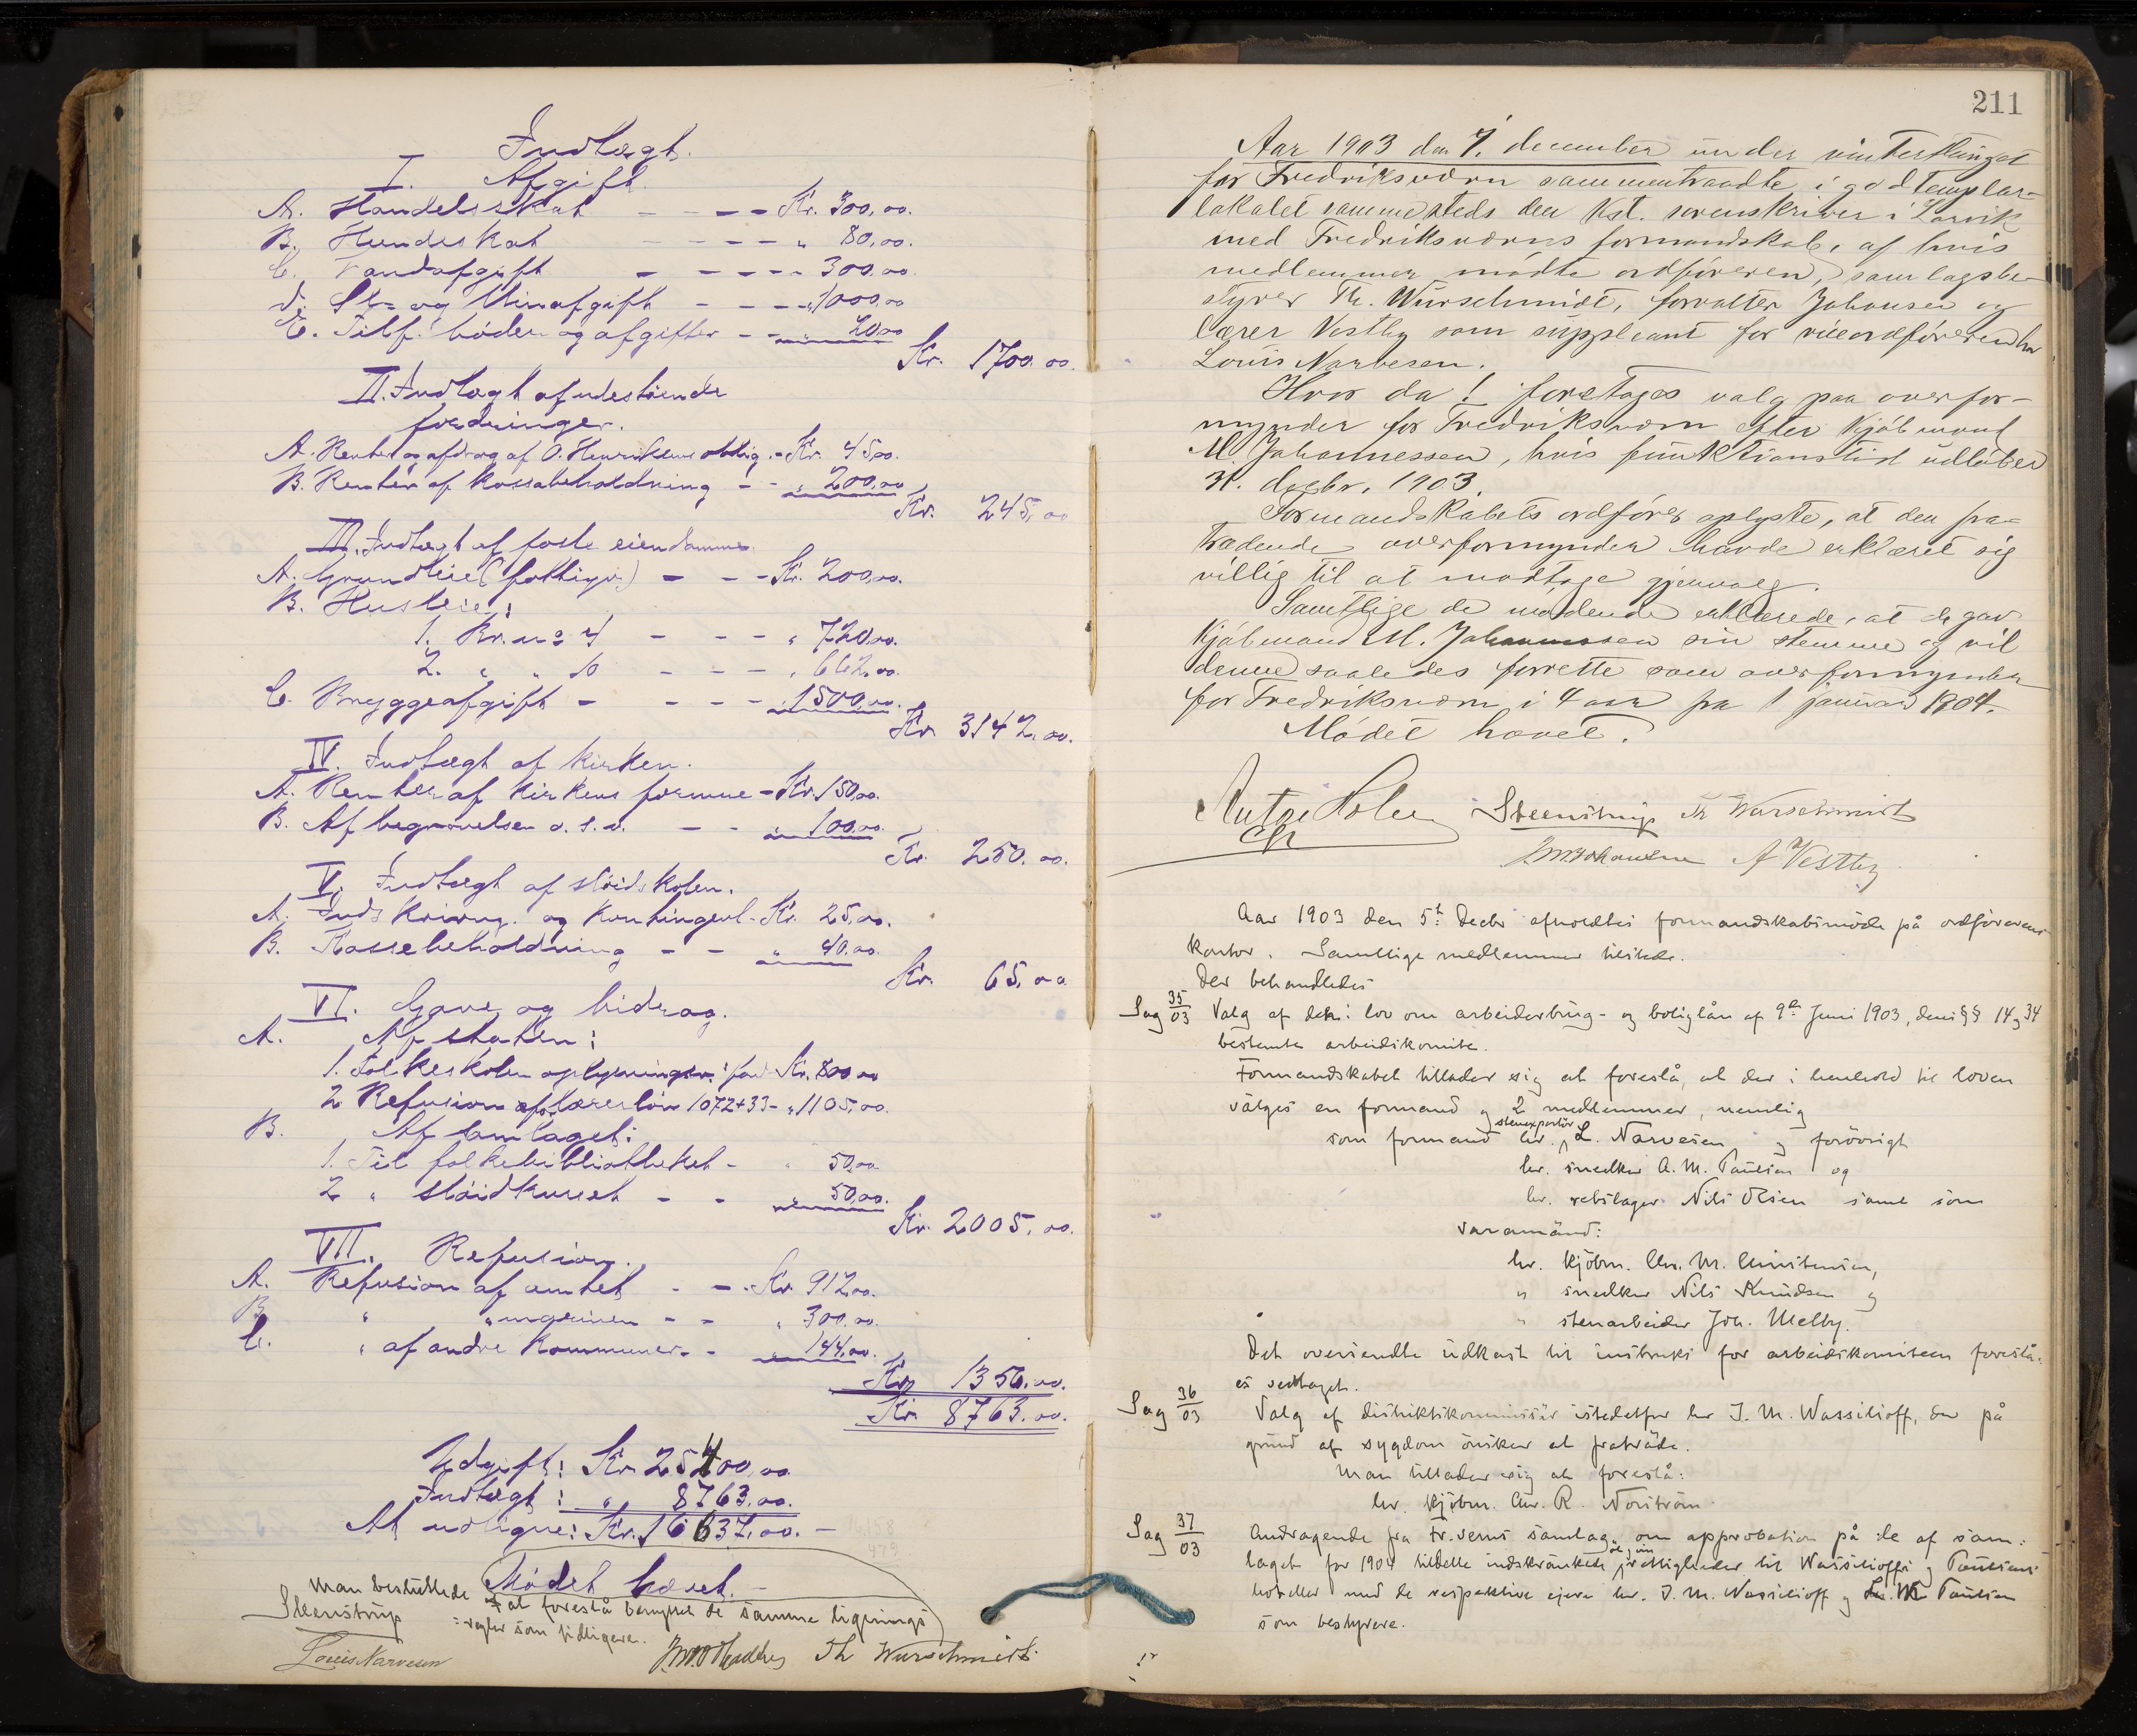 Indtægt.
I. Afgift.
A. Handelsskat - - - Kr. 300,00.
B. Hundeskat - - - " 80,00.
C. Vandafgift - - - - 300.00
D. Øl- og Vinafgift - - - " 1000,00
E. Tilf. bøder og afgifter - - " 20,00
Kr. 1700.00.
II. Indtægt af udestående
fordringer.
A. Renter og afdrag af O. Henriksens oblig. - Kr. 45,00.
B. Renter af kassabeholdning - - " 200,00
Kr. 245,00
III. Indtægt af faste eiendomme
A. Grundleie (fattigv.) - - - Kr. 200,00.
B. Husleie:
1. Br. no 4 - - - " 720,00.
2. " " 10 - - - " 662,00.
C. Bryggeafgift - - - - " 1500,00.
Kr. 3142,00.
IV. Indtægt af kirken.
A. Renter af kirkens formue - Kr. 150,00.
B. Af begravelser o.s.v. - - " 100,00.
Kr. 250.00.
V. Indtægt af sløidskolen.
A. Indskrivng. og kontingent - Kr. 25,00.
B. Kassebeholdning - - " 40.00.
Kr. 65,00
VI. Gave og bidrag.
A. Af staten:
1. Folkeskolen oplysningsv. fond Kr. 800,00
2 Refusion af lærerløn 1072+33 - " 1105,00.
B. Af samlaget:
1. Til folkebibliotheket - " 50,00
2 " sløidkurset - - " 50,00.
Kr. 2005,00.
VII. Refusion.
A. Refusion af amtet - - Kr. 912,00.
B. " " - - " 300.00.
C. " af andre kommuner - - " 144,00.
Kr. 1356.00.
Kr. 8763.00.
Udgift: Kr. 25400,00.
Indtægt: " 8763.00.
At udligne: Kr. 16637,00. -
Mødet hævet. -
Man besluttede at foreslå benyttet de samme lignings
=regler som tidligere.
Steenstrup
Louis Narvesen Th Wurschmidt
211
Aar 1903 den 7. december under vintertinget
for Fredriksværn sammentraadte i godtemplar-
lokalet sammesteds den kst. sorenskriver i Larvik
med Fredriksværns formandskab, af hvis
medlemmer mødte ordføreren, samlagsbe-
styrer Th. Würschmidt, forvalter Johansen og
lærer Vestby som suppleant for viceordføreren hr
Louis Narvesen.
Hvor da! foretages valg paa overfor-
mynder for Fredriksværn efter kjøbmand
M. Johannessen, hvis funktionstid udløber
31. decbr. 1903.
Formandskabets ordfører oplyste, at den fra-
trædende overformynder havde erklæret sig
villig til at modtage gjenvalg.
Samtlige de mødende erklærede, at de gav
kjøbmand M. Johannessen sin stemme og vil
denne saaledes forrette som overformynder
for Fredriksværn i 4 aar fra 1 januar 1904.
Mødet hævet.
Steenstrup Th Wurschmidt
A Vestby
Aar 1903 den 5te Decbr afholdtes formandskabsmøde på ordførerens
kontor. Samtlige medlemmer tilstede.
Der behandledes
Sag 35/03 Valg af den i lov om arbeiderbrug- og boliglån af 9de Juni 1903, dens §§ 14 og 34
bestemte arbeidskomite.
Formandskabet tillader sig at foreslå, at der i henhold til loven
vælges en formand og 2 medlemmer, nemlig
som formand hr. stenexportør L. Narvesen og forøvrigt
hr. snedker A. M. Paulsen og
hr. rebslager Nils Olsen samt som
varamænd:
hr. kjøbm. Chr. M. Christensen,
" snedker Nils Knudsen og
" stenarbeider Joh. Melby.
Det oversendte udkast til instruks for arbeidskomiteen foreslå-
es vedtaget.
Sag 36/03 Valg af distriktskommissær istedetfor hr J. M. Wassilioff, der på
grund af sygdom ønsker at fratræde.
Man tillader sig at foreslå:
hr. kjøbm. Chr. R. Norström
Sag 37/03 Andragende fra Fr.verns samlag om approbation på de af sam-
laget for 1904 tildelte indskrænkede rettigheder til Wassilioffs og Paulsens
hoteller med de respektive ejere hr. J. M. Wassilioff og Paulsen
som bestyrere.